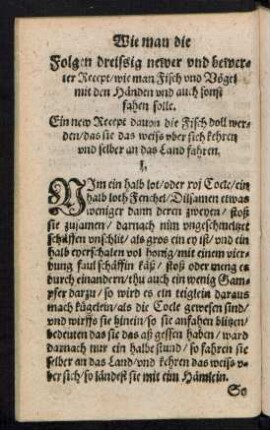 Wie man die
Folgen dreissig newer vnd bewer-
ter Recept / wie man Fisch vnd Vögel
mit den Händen vnd auch sonst
fahen solle.
Ein new Recept dauon die Fisch voll wer-
den / das sie das weiß vber sich kehren
vnd selber an das Land fahren.
I.
NIm ein halb lot / oder roj Cocle / ein
halb loth Fenchel / Dilsamen etwas
weniger dann deren zweyen / stoß
sie zusamen / darnach nim vngeschmeltzet
schäffen vnschlit / als gros ein ey ist / vnd ein
halb eyerschalen vol honig / mit einem vier-
dung faul schäffin käß / stoß oder meng es
durch einandern / thu auch ein wenig Gam-
pfer darzu / so wird es ein teiglein daraus
mach kügelein / als die Cocle gewesen sind /
vnd wirffs sie hinein / so sie anfahen blitzen /
bedeuten das sie das aß gessen haben / ward
darnach nur ein halbe stund / so fahren sie
selber an das Land / vnd kehren das weiß v-
ber sich / so ländest sie mit eim Hämlein.
So